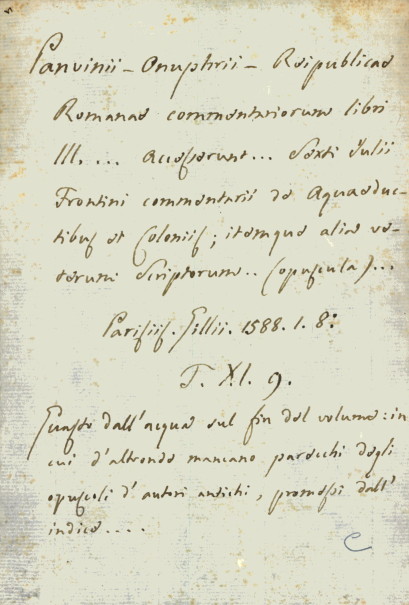 Panvinii - Onuphrii - Reipublicae
Romanae commentariorum libri
III. ... Accesserunt... Sexti Julii
Frontini commentarii de Aquaeduc-
tibus et Coloniis; itemque alia ve-
terum Scriptorum.. (opuscula)...
Parisiis. Gillii. 1588. 1. 8:
T. XI. 9.
Guasto dall'acqua sul fin del volume: in
cui d'altronde mancano parecchi degli
opuscoli d'autori antichi, promessi dall'
indice....
C